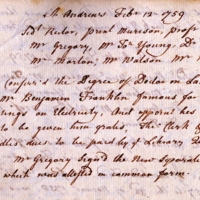 St Andrews Febr 12 1759
Sed. Rector, princl Murison, profr
Mr Gregory, Mr Young, Dr
Mr Morton, Mr Watson Mr
Confer's the Degree of Doctor in Laws
Mr Benjamin Franklin famous for
ings on Electricity, and appoint his
to be given him gratis, the Clerk &
dues to be paid by ye Library
Mr Gregory signed the New Separate
which was allowed in common form.